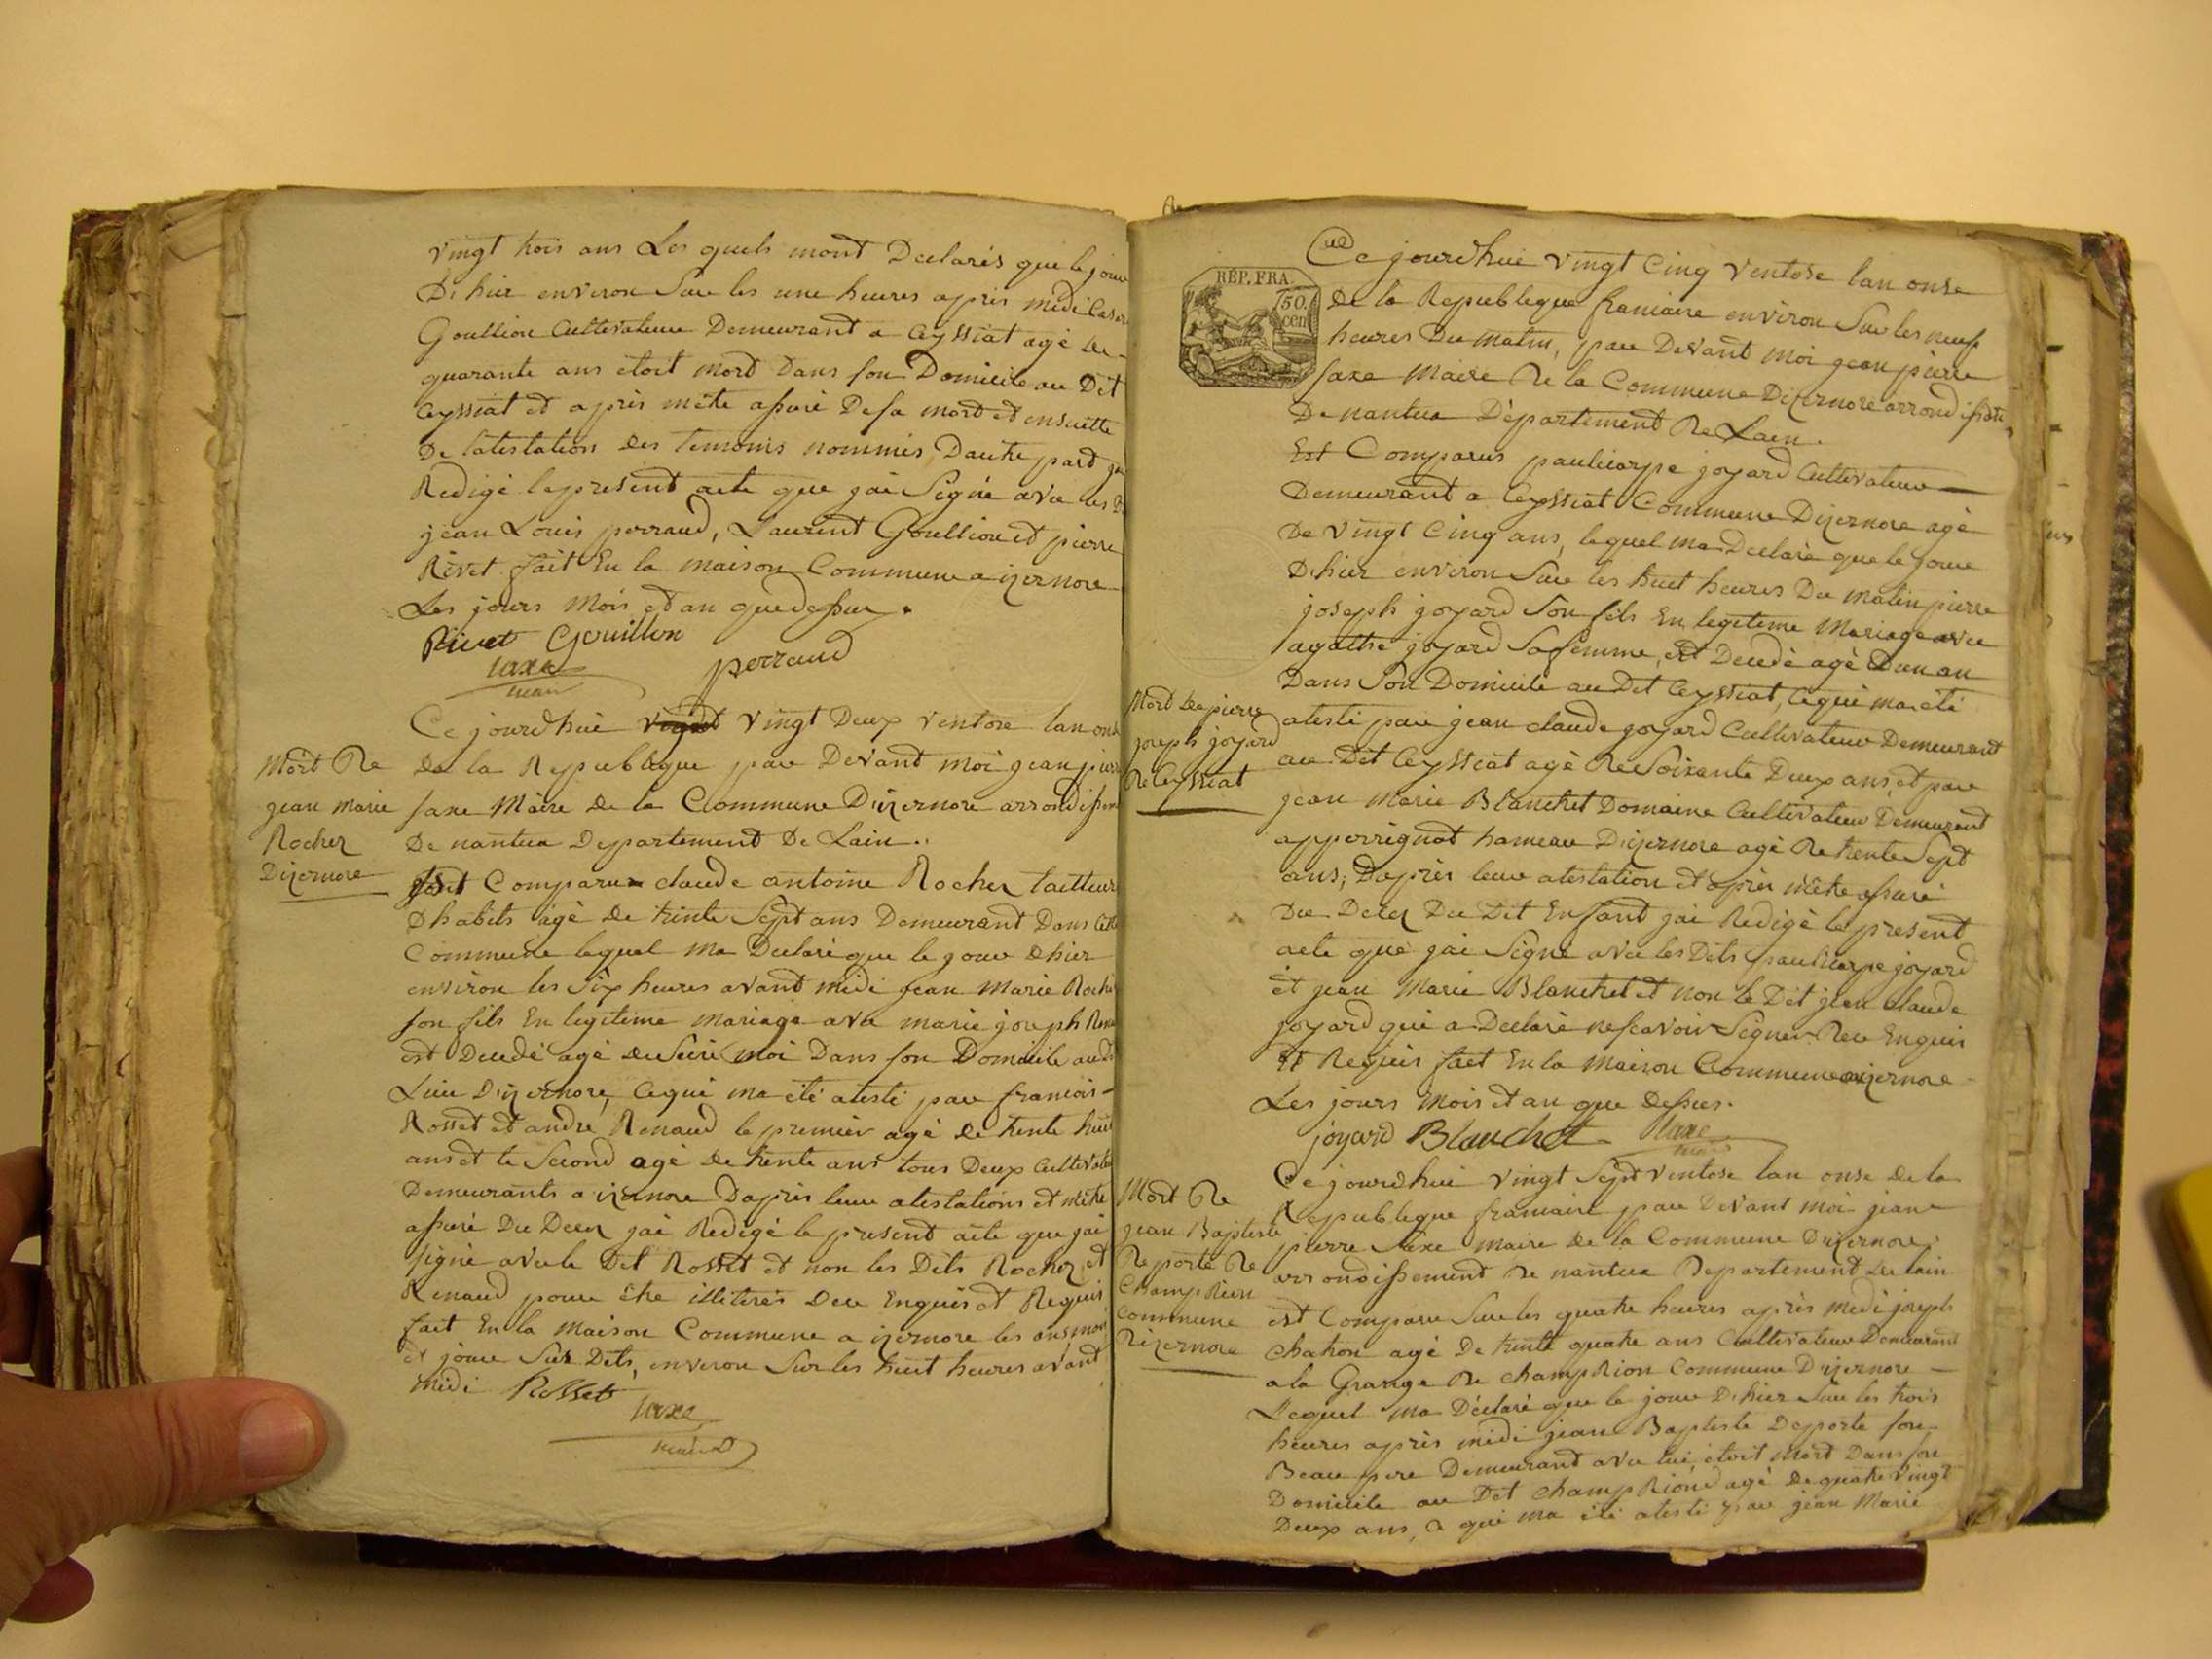 vingt trois ans Les quels mont Declarés que le jour
D'hier environ Sur les une heures après midi
Goullion Cultivateur Demeurant a Ceyssiat agé de
quarante ans étoit mort Dans son Domicile au Dit
Ceyssiat et après mêtre assuré De sa mort et ensuitte
De latestation des temoins nommés Dautre part jai
Redigé le present acte que jai Signé avec les
jean Louis perraud, Laurent Goullion et pierre
Rivet fait En la maison Commune a izernore
Les jours Mois et an que dessus.
Rivet Gouillon
perraud
saxe
maire
Ce jourdhui vingt Deux ventose lan onse
Mort De
jean marie
Rocher
Dizernore
de la Republique par Devant moi jean pierre
saxe Maire de la Commune Dizernore arrondissm
De nantua Departement De Lain..
Est Comparu claude antoine Rocher tailleur
Dhabits agé de trente Sept ans Demeurant Dans cette
Commune lequel ma Declaré que le jour dhier
environ les Six heures avant midi jean Marie Rocher
son fils En legitime mariage avec marie joseph
est Decedé agé de Moi Dans son Domicile audit
Lieu Dizernore, Ce qui ma été atesté par francois
Rosset et andre Renaud le premier agé de trente huit
ans et le Second agé de trente ans tous Deux Cultivateurs
Demeurants a izernore Daprès leur atestations et mêtre
assuré Du Deces jai Redigé le present acte que jai
signé avec le Dit Rosset et non les Dits Rocher et
Renaud pour être illiterés Dece Enquis et Requis
fait En la Maison Commune a izernore les ans mois
et jour Sus Dits, environ Sur les huit heures avant
midi Rosset
saxe
maire
RÉP. FRA.
50.
cen
Ce jourdhui vingt Cinq ventose lan onse
de la Republique francaise environ Sur les neuf
heures Du matin, par Devant moi jean pierre
saxe Maire De la Commune Dizernore arrondissem
De nantua Département De Lain.
Est Comparus paulicarpe joyard Cultivateur
Demeurant a Ceyssiat Commune Dizernore agé
De vingt Cinq ans, lequel ma Declaré que le jour
D'hier environ Sur les huit heures Du matin pierre
joseph joyard Son fils En legitime Mariage avec
agathe joyard Sa femme, est Decedé agé Dun an
Dans Son Domicile au Dit Ceyssiat, Ce qui ma été
Mort De pierre
joseph joyard
De Ceyssiat
atesté par jean claude joyard Cultivateur Demeurant
au Dit Ceyssiat agé De Soixante Deux ans, et par
jean Marie Blanchet Domaine Cultivateur Demeurant
apperrignat hameau Dizernore agé De trente Sept
ans; Daprès leur atestation et après mêtre assuré
Du Deces Du Dit Enfant jai Redigé le present
acte que jai Signé avec les Dits paulicarpe joyard
et jean Marie Blanchet et non le Dit jean claude
joyard qui a Declaré ne scavoir Signer Dece Enquis
Et Requis fait En la Maison Commune a izernore
Les jours Mois et an que Dessus.
joyard Blanchet saxe
maire
Ce jourdhui vingt Sept ventose lan onse de la
Mort De
jean Baptiste
Deporte De
Champ Rion
commune
Dizernore
Republique francaise par Devant moi jean
pierre Saxe maire de la Commune Dizernore
arrondissement de nantua Departement de lain
est Comparu Sur les quatre heures après midi joseph
chatron agé De trente quatre ans Cultivateur Demeurant
a la Grange De champ Rion Commune Dizernore
Lequel ma Déclaré que le jour D'hier Sur les trois
heures après midi jean Baptiste Deporte son
Beau pere Demeurant avec lui, étoit Mort Dans son
Domicile au Dit champ Rion agé De quatre vingt
Deux ans, Ce qui ma été atesté par jean Marie